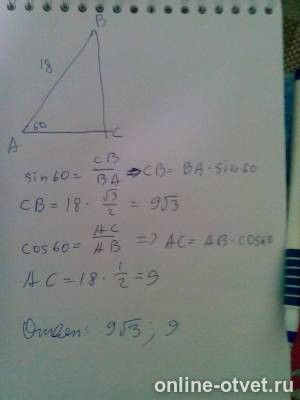 B
18
60
A
C
sin60 = CB/BA ⇒ CB = BA·sin60
CB = 18 · √3/2 = 9√3
cos60 = AC/AB ⇒ AC = AB·cos60
AC = 18 · 1/2 = 9
Ответ: 9√3 ; 9
online-otvet.ru